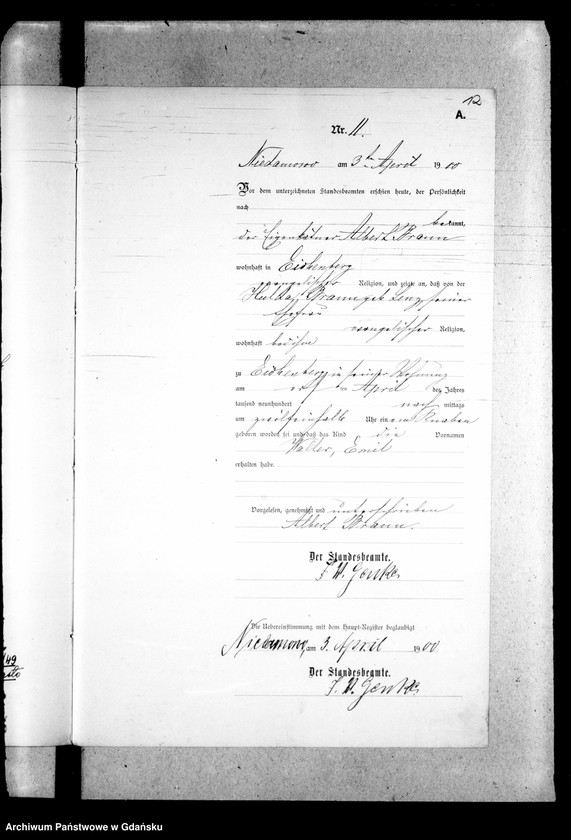 12
A.
Nr. 11.
Niedamowo am 3ten April 1900
Vor dem unterzeichneten Standesbeamten erschien heute, der Persönlichkeit
nach
bekannt,
der Eigenkätner Albert Braun
wohnhaft in Eichenberg
evangelischer Religion, und zeigte an, daß von der
Hulda Braun geb. Lenz seiner
Ehefrau
evangelischer Religion,
wohnhaft bei ihm
zu Eichenberg in seiner Wohnung
am ersten April des Jahres
tausend neunhundert nach mittags
um zwölfeinhalb Uhr ein Knaben
geboren worden sei und daß das Kind die Vornamen
Walter, Emil
erhalten habe.
Vorgelesen, genehmigt und unterschrieben
Albert Braun.
Der Standesbeamte.
J. V. Genke
Die Uebereinstimmung mit dem Haupt-Register beglaubigt
Niedamowo, am 3. April 1900
Der Standesbeamte.
J. V. Genke
149
Archiwum Państwowe w Gdańsku